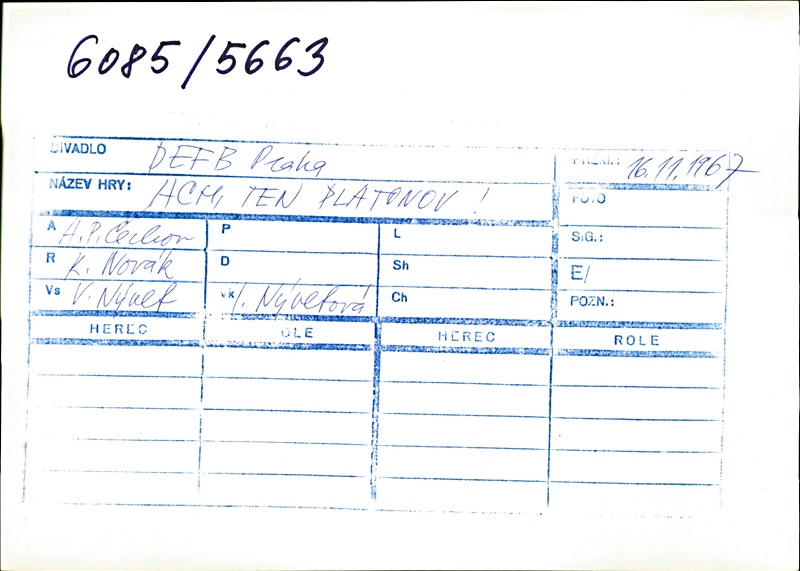 6085/5663
DIVADLO DEFB Praha PREM.: 16.11.1967
NÁZEV HRY: ACH, TEN PLATONOV! FOTO
A A.P. Čechov P L SIG.:
R K. Novák D Sh E/
Vs V. Nývlt vk I. Nývltová Ch POZN.:
HEREC ROLE HEREC ROLE